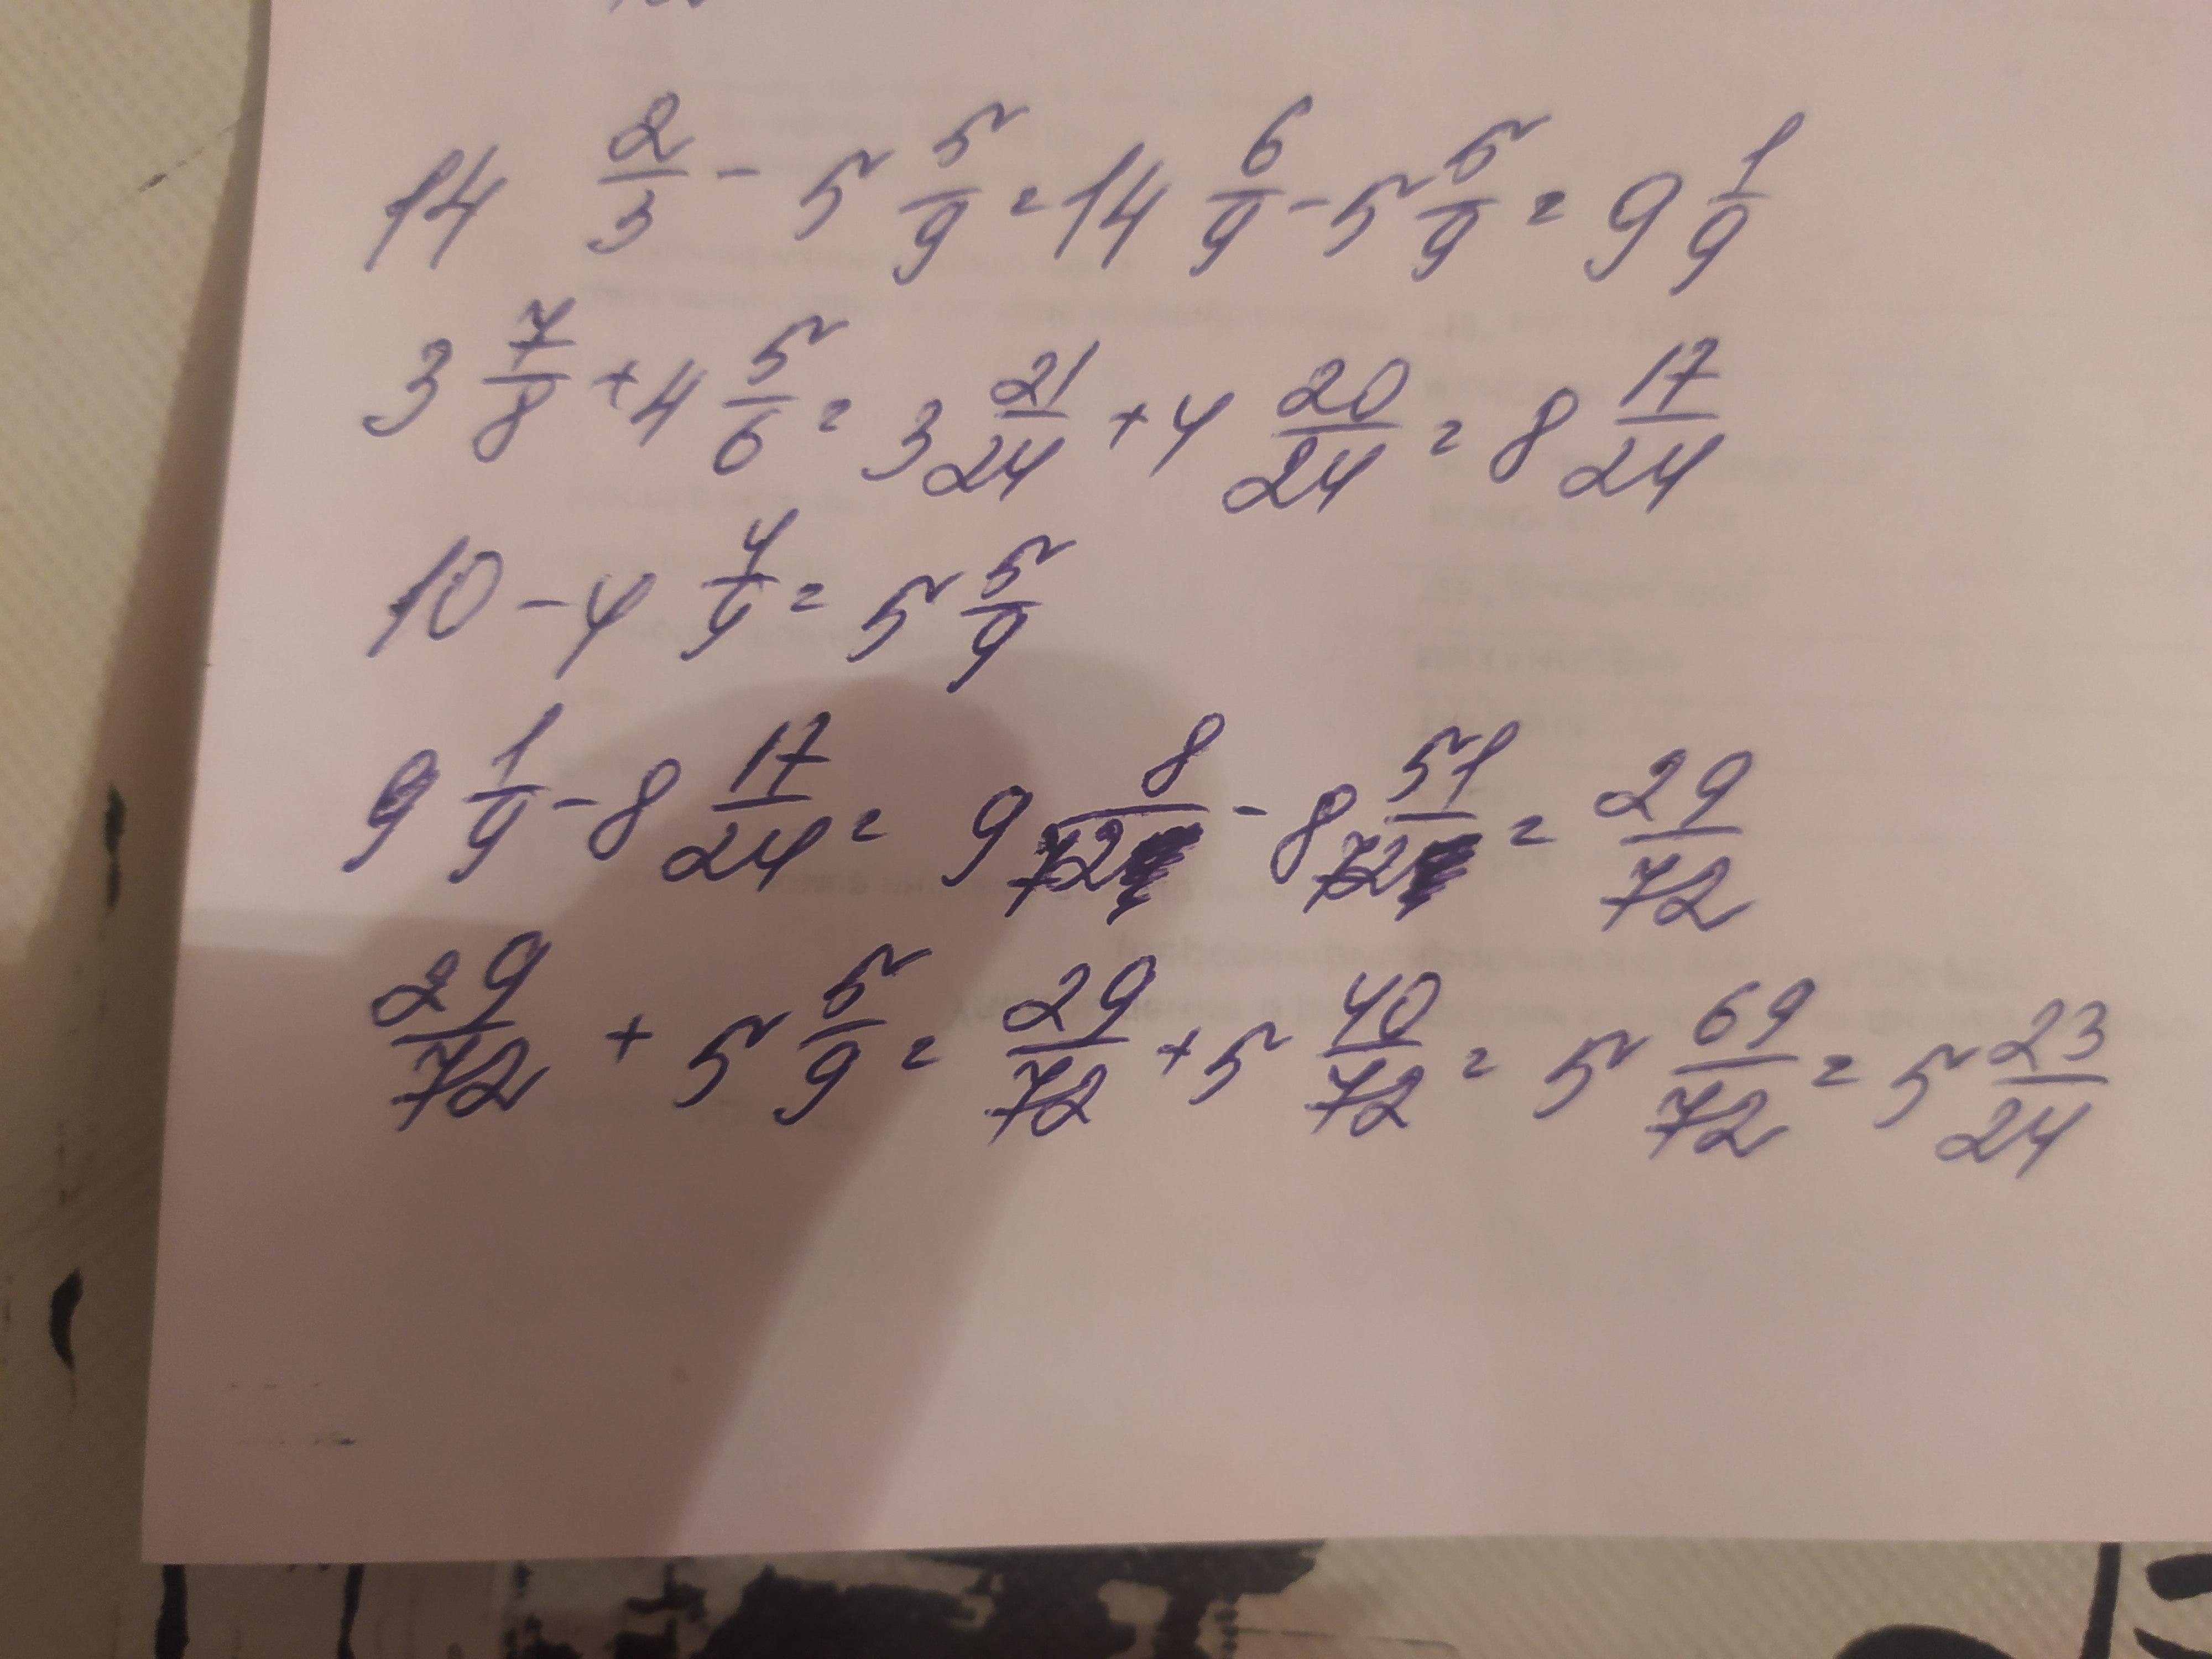 14 2/3 - 5 5/9 = 14 6/9 - 5 5/9 = 9 1/9
3 7/8 + 4 5/6 = 3 21/24 + 4 20/24 = 8 17/24
10 - 4 4/9 = 5 5/9
9 1/9 - 8 17/24 = 9 8/72 - 8 51/72 = 29/72
29/72 + 5 5/9 = 29/72 + 5 40/72 = 5 69/72 = 5 23/24